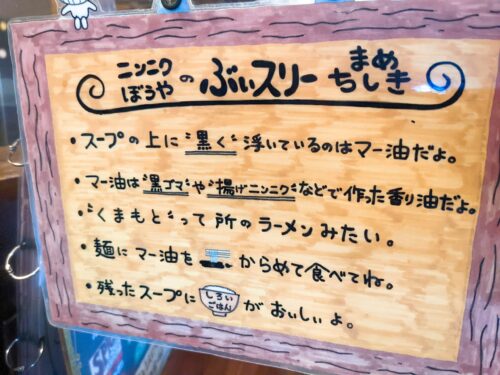 ニンニクぼうやの ぶぃスリー まめちしき
・スープの上に"黒く"浮いているのはマー油だよ。
・マー油は"黒ゴマ"や"揚げニンニク"などで作った香り油だよ。
・"くまもと"って所のラーメンみたい。
・麺にマー油をからめて食べてね。
・残ったスープにしろいごはんがおいしぃよ。